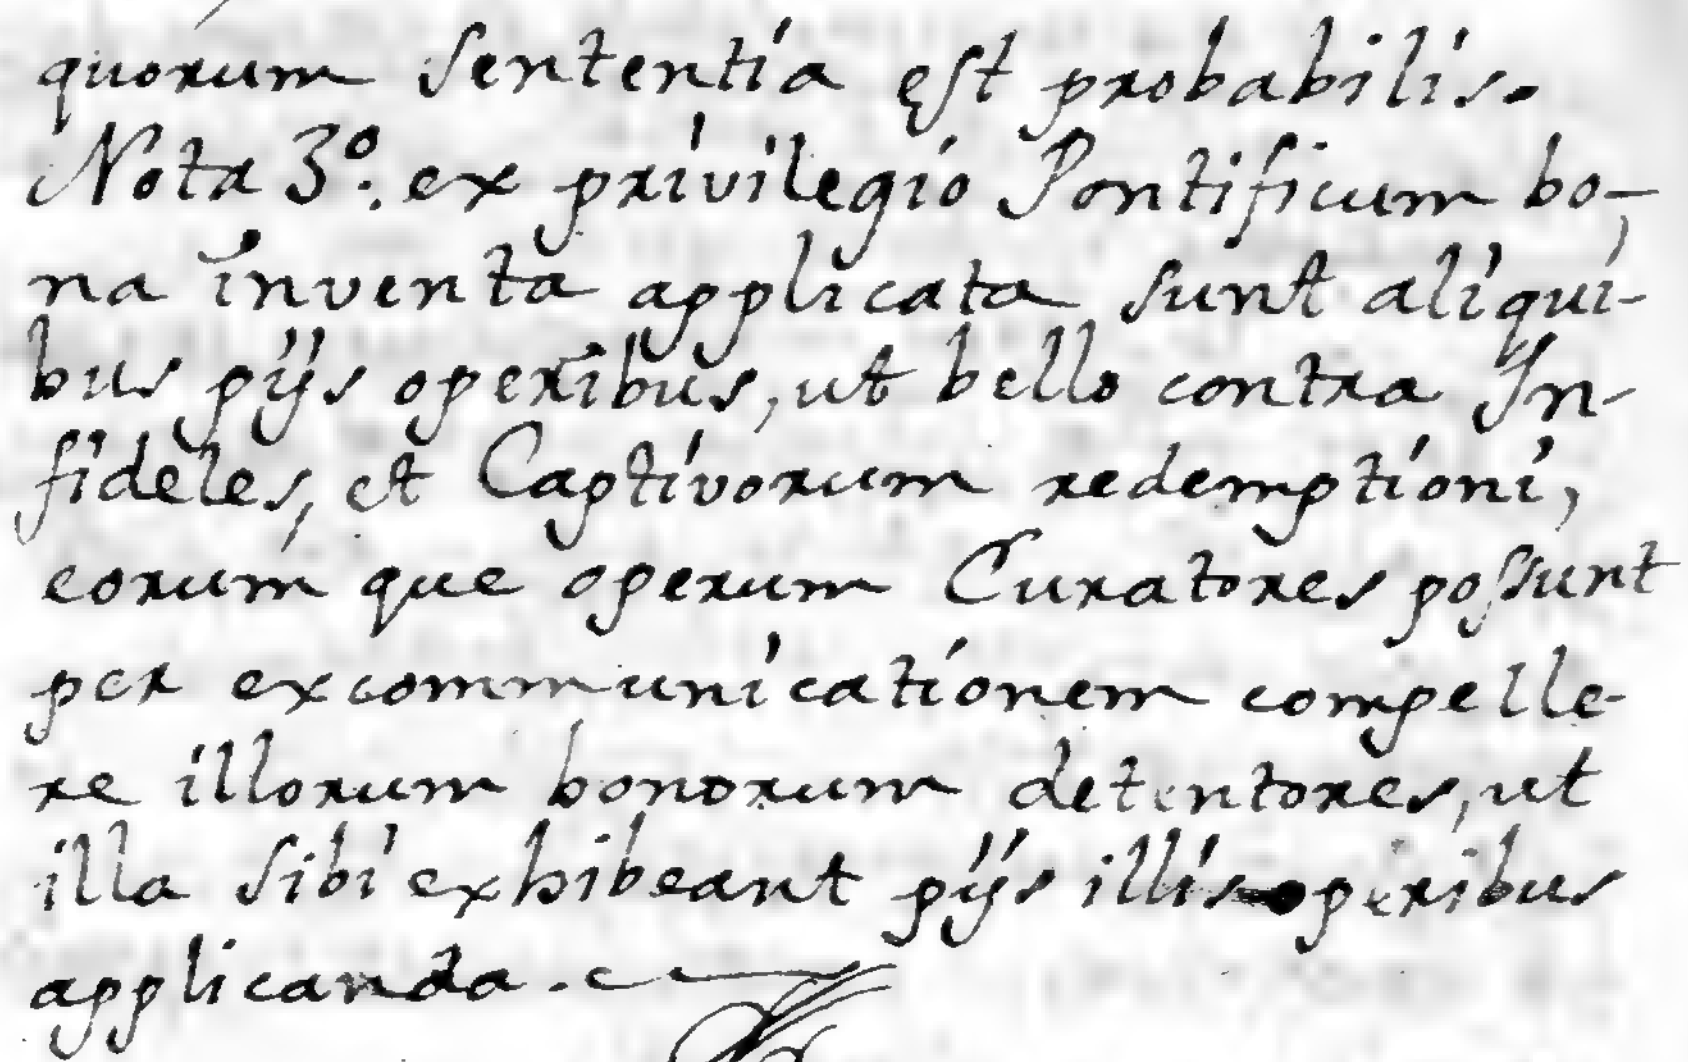 quorum sententia est probabilis.
Nota 3º. ex privilegio Pontificum bo-
na inventa applicata sunt aliqui-
bus pijs operibus, ut bello contra In-
fideles, et Captivorum redemptioni,
eorum que operum Curatores possunt
per excommunicationem compelle-
re illorum bonorum detentores, ut
illa sibi exhibeant pijs illis operibus
applicanda.